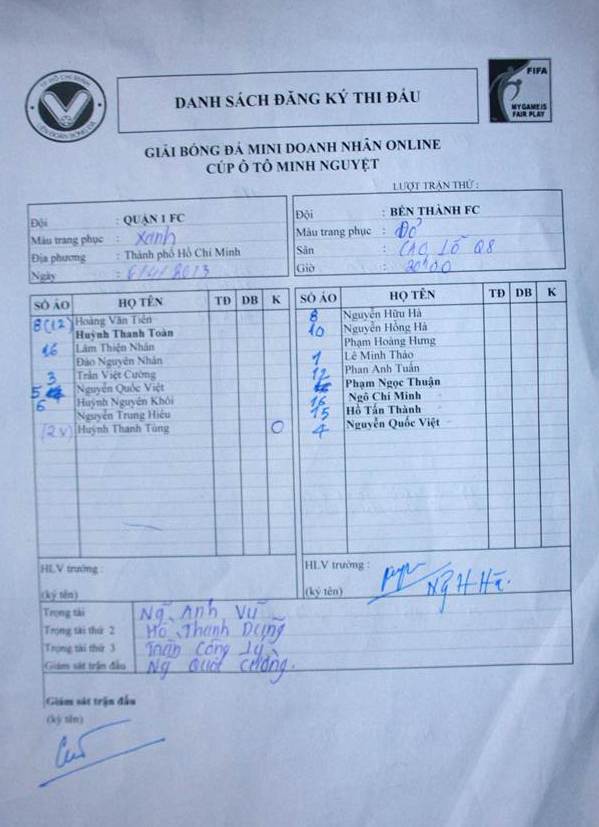 TP HỒ CHÍ MINH
LIÊN ĐOÀN BÓNG ĐÁ
FIFA
MY GAME IS
FAIR PLAY
DANH SÁCH ĐĂNG KÝ THI ĐẤU
GIẢI BÓNG ĐÁ MINI DOANH NHÂN ONLINE
CÚP Ô TÔ MINH NGUYỆT
LƯỢT TRẬN THỨ :
Đội : QUẬN 1 FC
Màu trang phục : Xanh
Địa phương : Thành phố Hồ Chí Minh
Ngày :
Đội : BẾN THÀNH FC
Màu trang phục : Đỏ
Sân : CAO LỖ Q8
Giờ : 20h00
SỐ ÁO HỌ TÊN TĐ DB K
8 (12) Hoàng Văn Tiến
Huỳnh Thanh Toàn
16 Lâm Thiện Nhân
Đào Nguyên Nhân
3 Trần Việt Cường
5 Nguyễn Quốc Việt
6 Huỳnh Nguyên Khôi
Nguyễn Trung Hiếu
Huỳnh Thanh Tùng O
SỐ ÁO HỌ TÊN TĐ DB K
8 Nguyễn Hữu Hà
10 Nguyễn Hồng Hà
Phạm Hoàng Hưng
1 Lê Minh Thảo
12 Phan Anh Tuấn
Phạm Ngọc Thuận
16 Ngô Chí Minh
15 Hồ Tấn Thành
4 Nguyễn Quốc Việt
HLV trưởng :
(ký tên)
HLV trưởng :
(ký tên) Ng H Hà.
Trọng tài Ng Anh Vũ
Trọng tài thứ 2 Hồ Thanh Dũng
Trọng tài thứ 3 Trần Công Lý
Giám sát trận đấu Ng Quốc
Giám sát trận đấu
(ký tên)